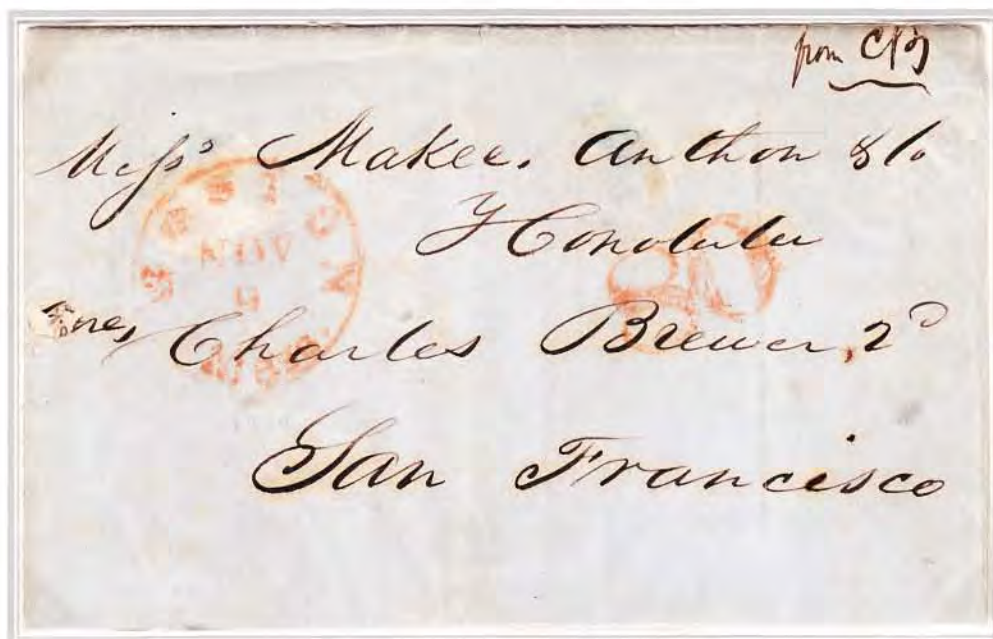 from
Messrs Makee, Anthon & Co
Honolulu
Care, Charles Brewer, 2d
San Francisco
NOV
80